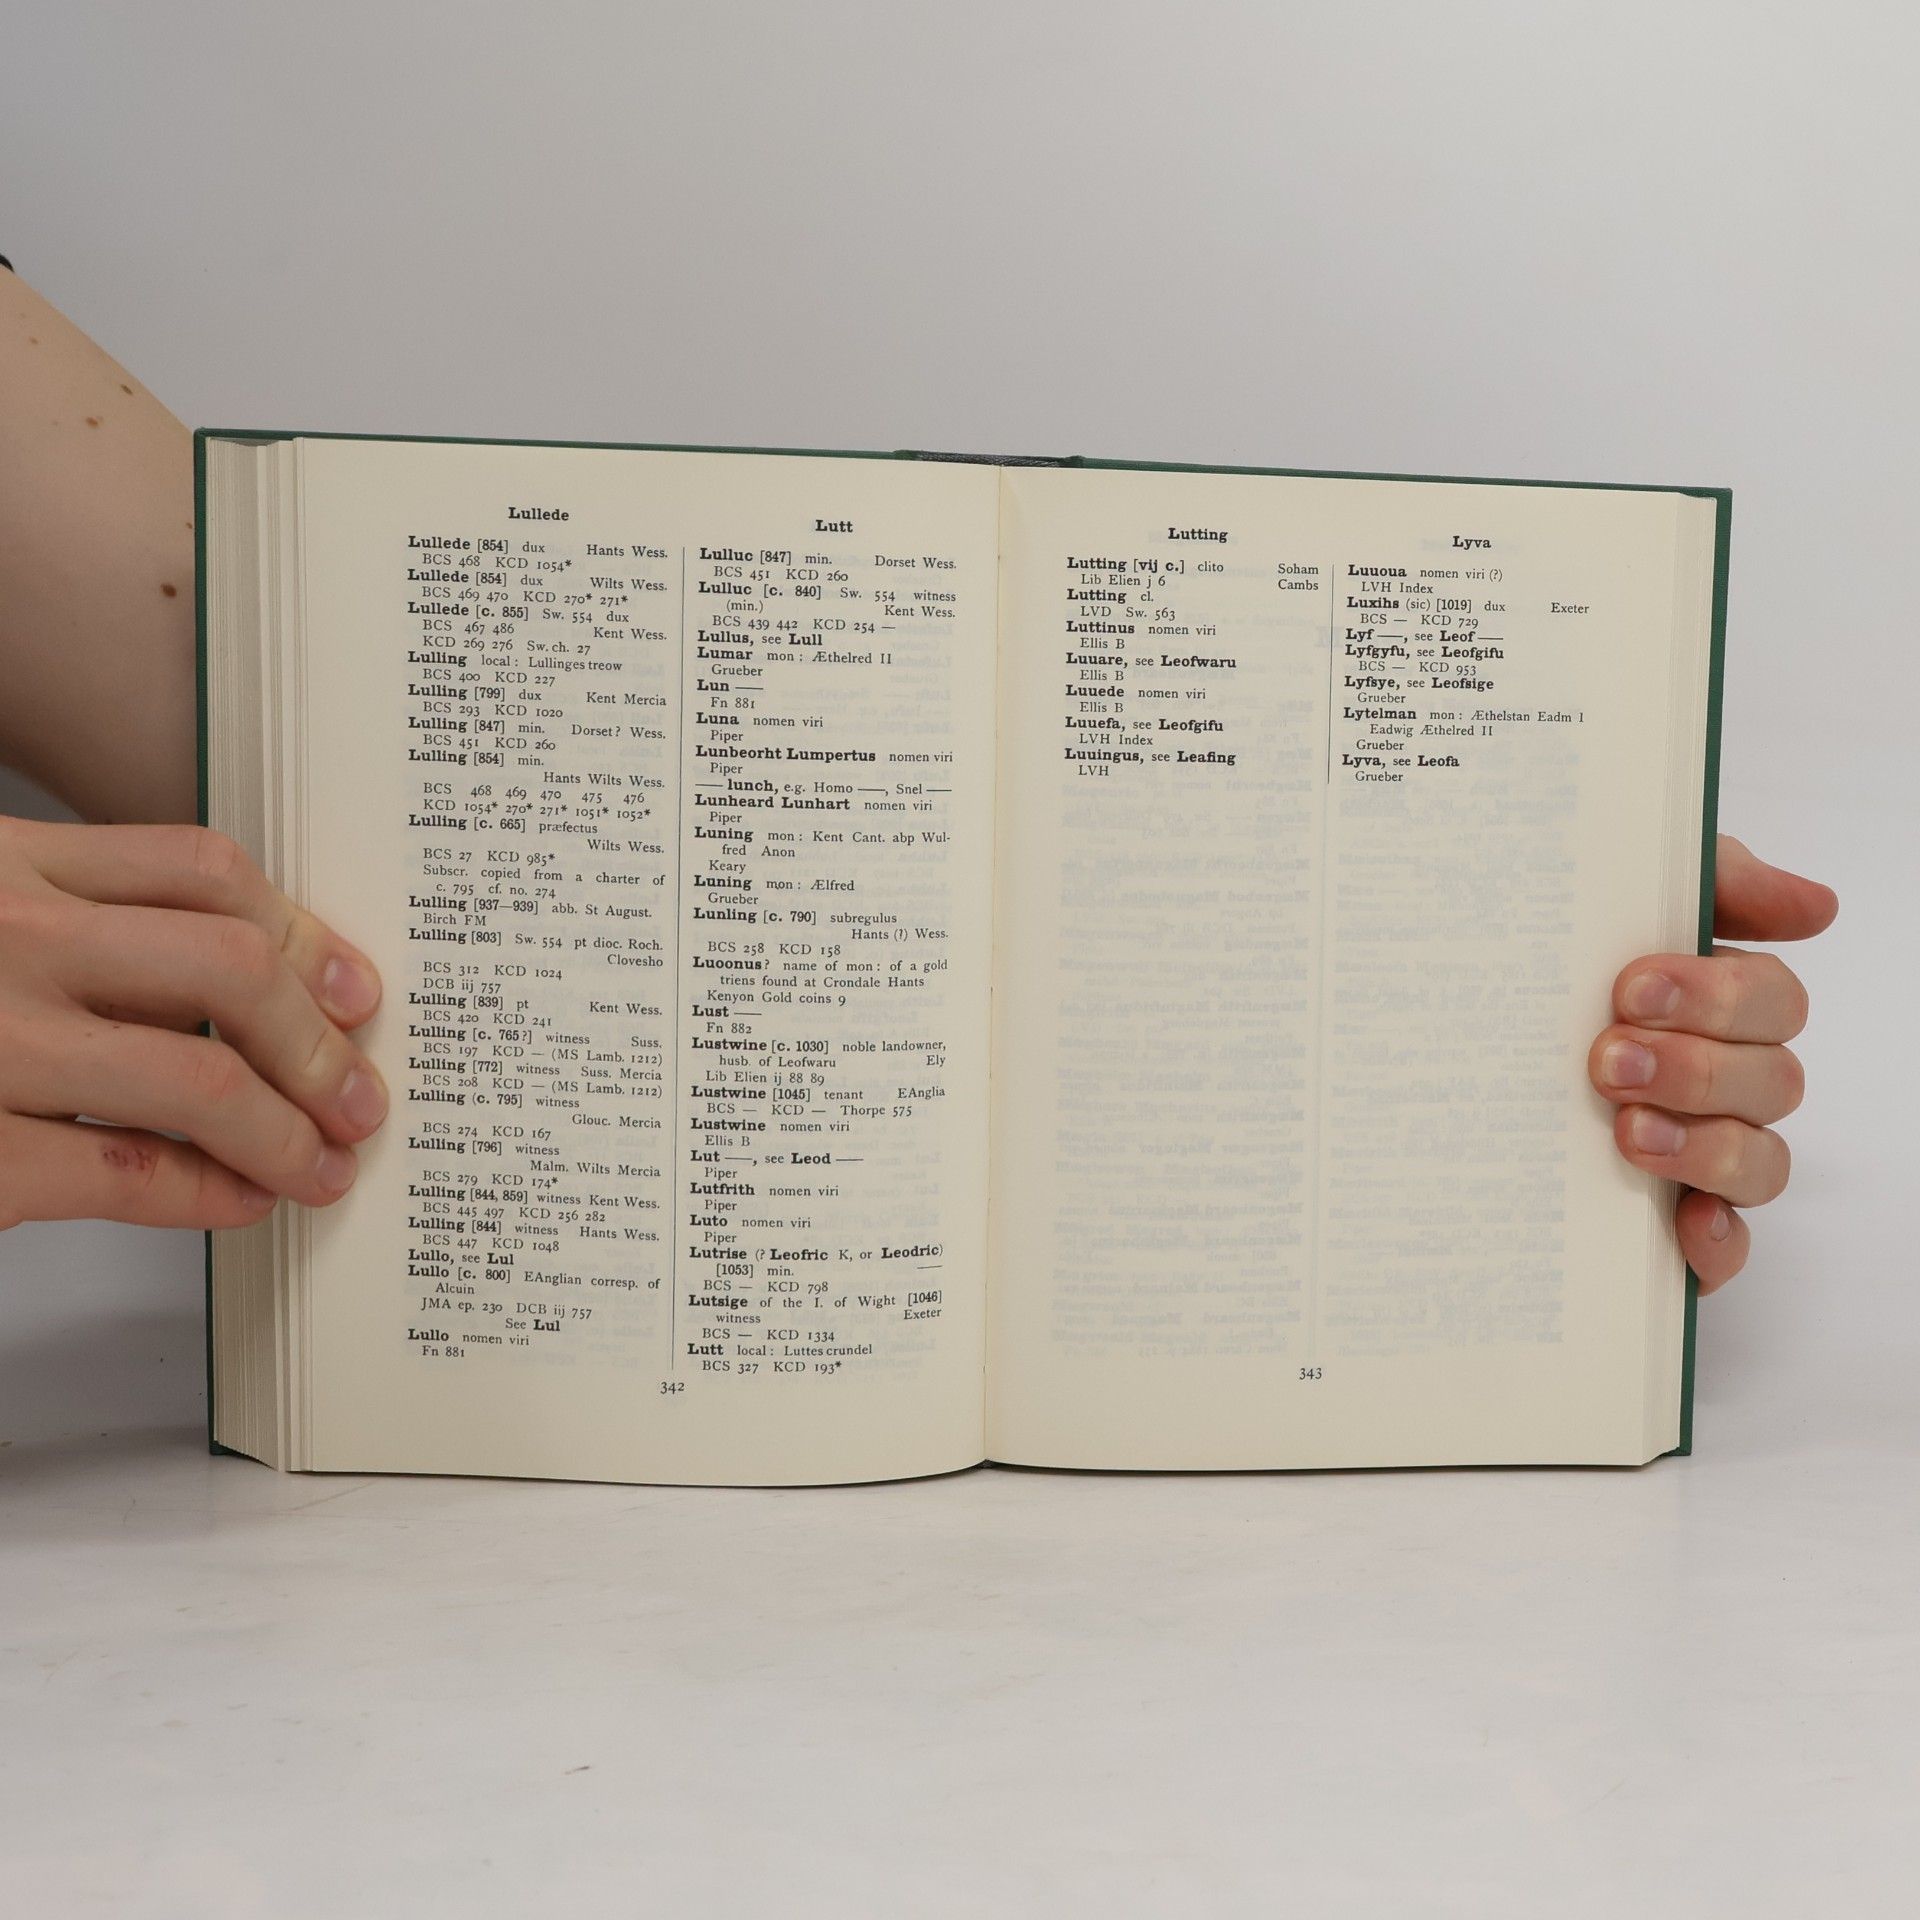 Lullede
Lullede [854] dux Hants Wess.
BCS 468 KCD 1054*
Lullede [854] dux Wilts Wess.
BCS 469 470 KCD 270* 271*
Lullede [c. 855] Sw. 554 dux
BCS 467 486 Kent Wess.
KCD 269 276 Sw. ch. 27
Lulling local: Lullinges treow
BCS 400 KCD 227
Lulling [799] dux Kent Mercia
BCS 293 KCD 1020
Lulling [847] min. Dorset? Wess.
BCS 451 KCD 260
Lulling [854] min.
Hants Wilts Wess.
BCS 468 469 470 475 476
KCD 1054* 270* 271* 1051* 1052*
Lulling [c. 665] præfectus
Wilts Wess.
BCS 27 KCD 985*
Subscr. copied from a charter of
c. 795 cf. no. 274
Lulling [937—939] abb. St August.
Birch FM
Lulling [803] Sw. 554 pt dioc. Roch.
Clovesho
BCS 312 KCD 1024
DCB iij 757
Lulling [839] pt Kent Wess.
BCS 420 KCD 241
Lulling [c. 765?] witness Suss.
BCS 197 KCD — (MS Lamb. 1212)
Lulling [772] witness Suss. Mercia
BCS 208 KCD — (MS Lamb. 1212)
Lulling (c. 795] witness
Glouc. Mercia
BCS 274 KCD 167
Lulling [796] witness
Malm. Wilts Mercia
BCS 279 KCD 174*
Lulling [844, 859] witness Kent Wess.
BCS 445 497 KCD 256 282
Lulling [844] witness Hants Wess.
BCS 447 KCD 1048
Lullo, see Lul
Lullo [c. 800] EAnglian corresp. of
Alcuin
JMA ep. 230 DCB iij 757
See Lul
Lullo nomen viri
Fn 881
Lutt
Lulluc [847] min. Dorset Wess.
BCS 451 KCD 260
Lulluc [c. 840] Sw. 554 witness
(min.) Kent Wess.
BCS 439 442 KCD 254 —
Lullus, see Lull
Lumar mon: Æthelred II
Grueber
Lun —
Fn 881
Luna nomen viri
Piper
Lunbeorht Lumpertus nomen viri
Piper
— lunch, e.g. Homo —, Snel —
Lunheard Lunhart nomen viri
Piper
Luning mon: Kent Cant. abp Wul-
fred Anon
Keary
Luning mon: Ælfred
Grueber
Lunling [c. 790] subregulus
Hants (?) Wess.
BCS 258 KCD 158
Luoonus? name of mon: of a gold
triens found at Crondale Hants
Kenyon Gold coins 9
Lust —
Fn 882
Lustwine [c. 1030] noble landowner,
husb. of Leofwaru Ely
Lib Elien ij 88 89
Lustwine [1045] tenant EAnglia
BCS — KCD — Thorpe 575
Lustwine nomen viri
Ellis B
Lut —, see Leod —
Piper
Lutfrith nomen viri
Piper
Luto nomen viri
Piper
Lutrise (? Leofric K, or Leodric)
[1053] min. —
BCS — KCD 798
Lutsige of the I. of Wight [1046]
witness Exeter
BCS — KCD 1334
Lutt local: Luttes crundel
BCS 327 KCD 193*
342
Lutting
Lutting [vij c.] clito Soham
Lib Elien j 6 Cambs
Lutting cl.
LVD Sw. 563
Luttinus nomen viri
Ellis B
Luuare, see Leofwaru
Ellis B
Luuede nomen viri
Ellis B
Luuefa, see Leofgifu
LVH Index
Luuingus, see Leafing
LVH
Lyva
Luuoua nomen viri (?)
LVH Index
Luxihs (sic) [1019] dux Exeter
BCS — KCD 729
Lyf —, see Leof —
Lyfgyfu, see Leofgifu
BCS — KCD 953
Lyfsye, see Leofsige
Grueber
Lytelman mon: Æthelstan Eadm I
Eadwig Æthelred II
Grueber
Lyva, see Leofa
Grueber
343